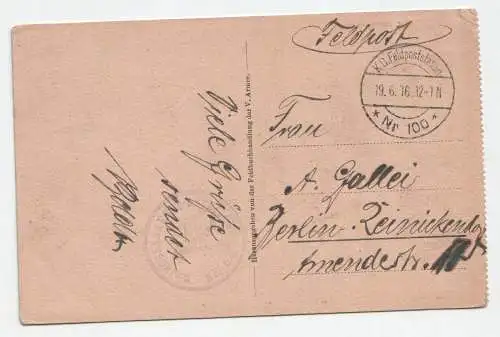 Feldpost
K.D. Feldpoststation
19.6.16. 12-1 N
* Nr 100 *
Frau
A. Gallei
Berlin-Reinickendorf
Amendestr.
Herausgegeben von der Feldbuchhandlung der V. Armee.
Viele Grüße
sendet